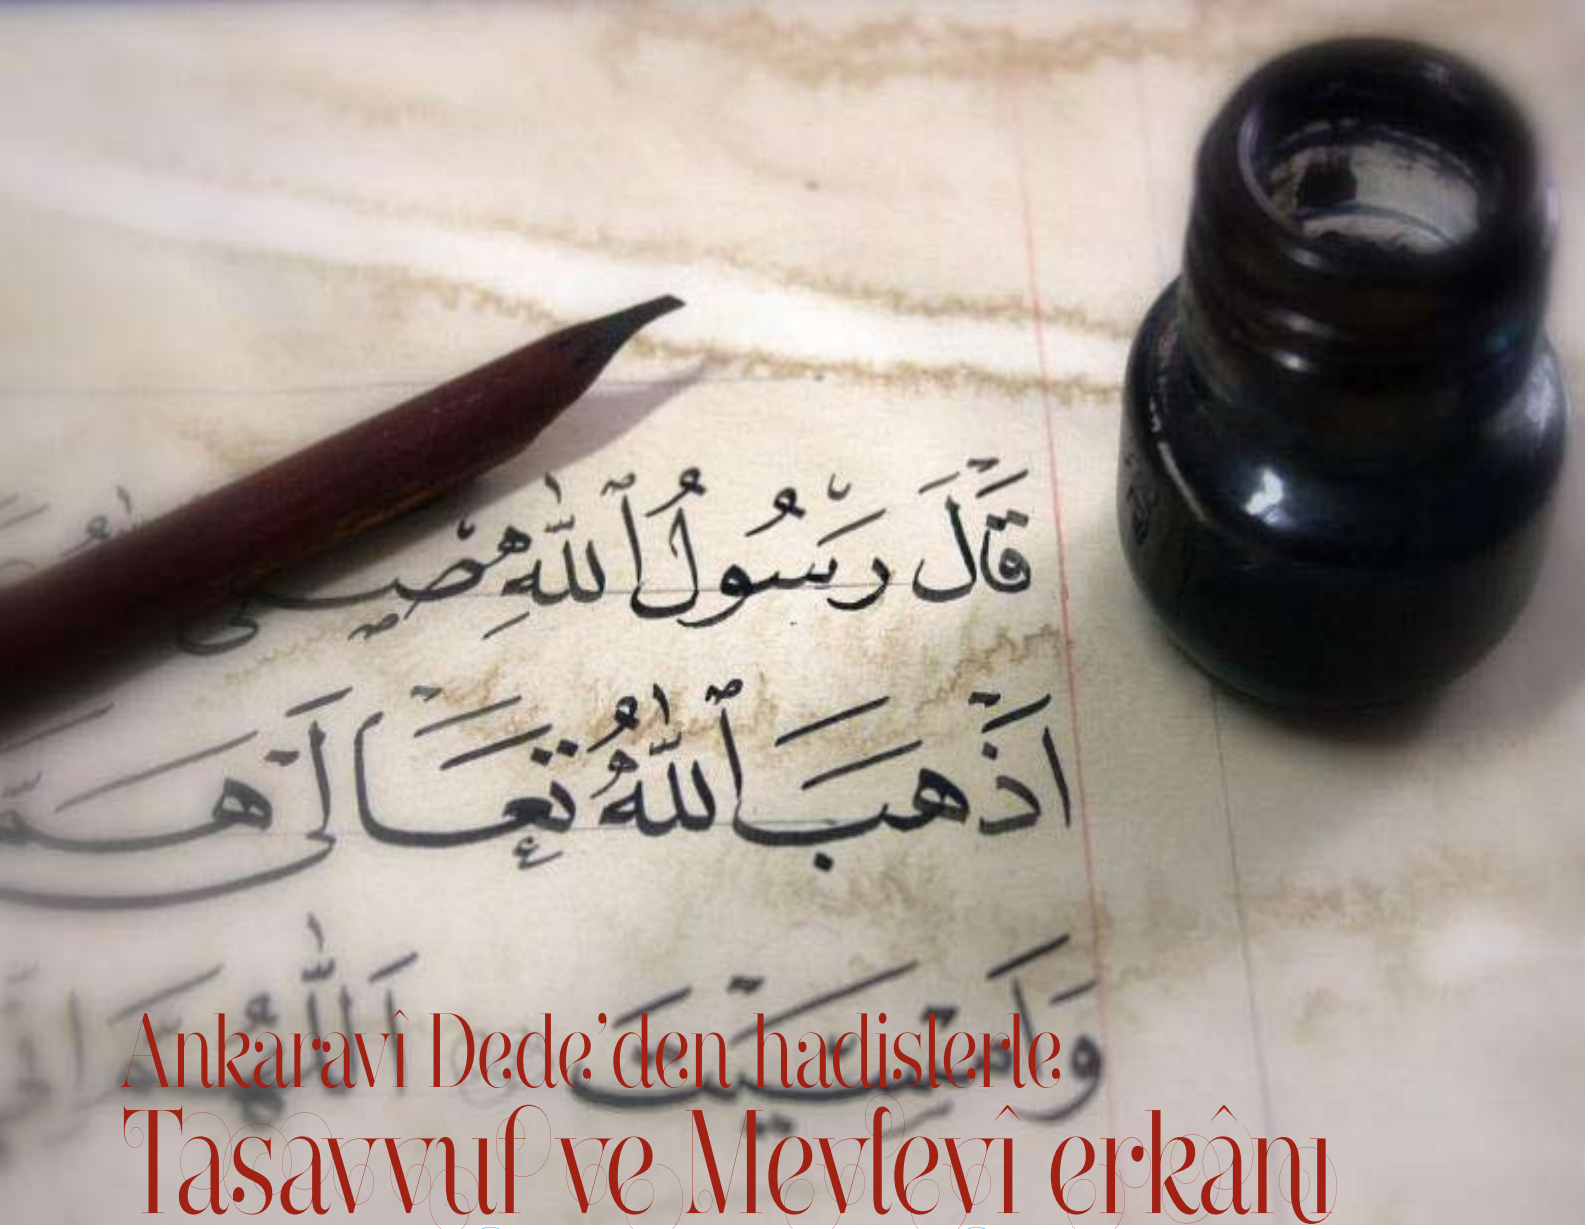 قَالَ رَسُولُ ٱللّٰهِ
اَذْهَبَ ٱللّٰهُ تَعَالَى
اَللّٰهُمَّ
Ankaravî Dede’den hadislerle
Tasavvuf ve Mevlevî erkânı